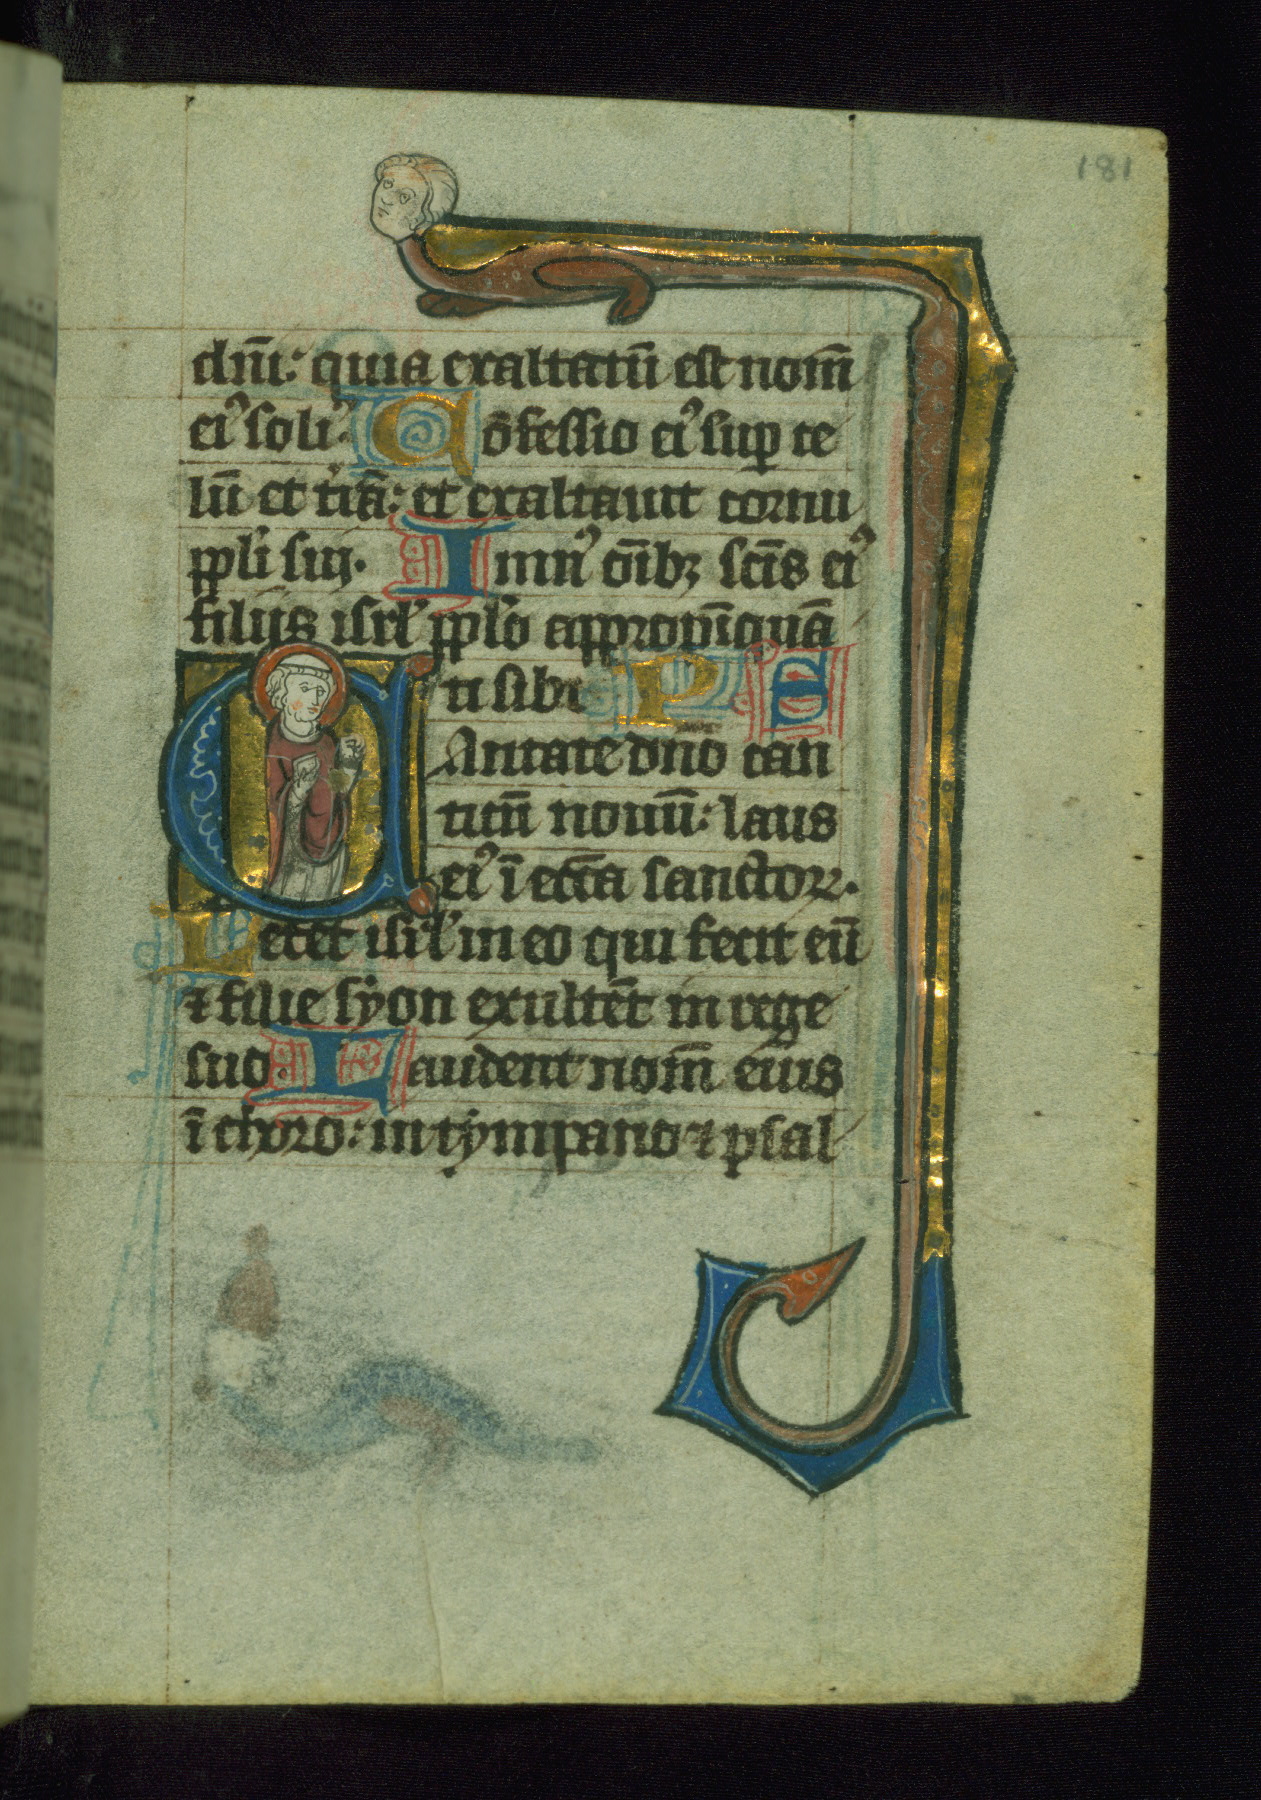 181
dn̄i: quia exaltatū est nom̄
ei⁹ soli⁹. Cōfessio ei⁹ suꝑ ce
lū et t̄rā: et exaltauit cornu
ppl̓i sui. Imn⁹ oīb⁊ scīs ei⁹
filiis isrl̓ ppl̓o appropīquā
ti sibi. P S
CAntate dn̄o can
ticū nouū: laus
ei⁹ ī ecc̄a sanctoꝝ.
Letet̓ isrl̓ in eo qui fecit eū
⁊ filie syon exultēt in rege
suo. Laudent nom̄ eius
ī choro: in tympano ⁊ psal